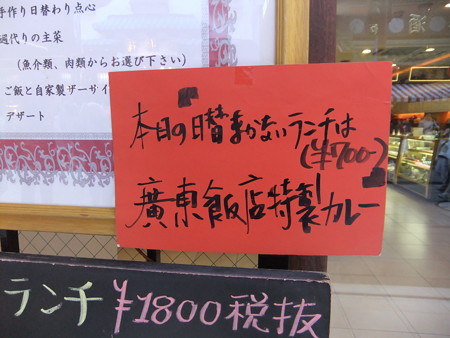 手作り日替わり点心
週代りの主菜
(魚介類、肉類からお選び下さい)
ご飯と自家製ザーサイ
デザート
本日の日替まかないランチは
(¥700-)
廣東飯店特製カレー
ランチ ¥1800税抜
酒